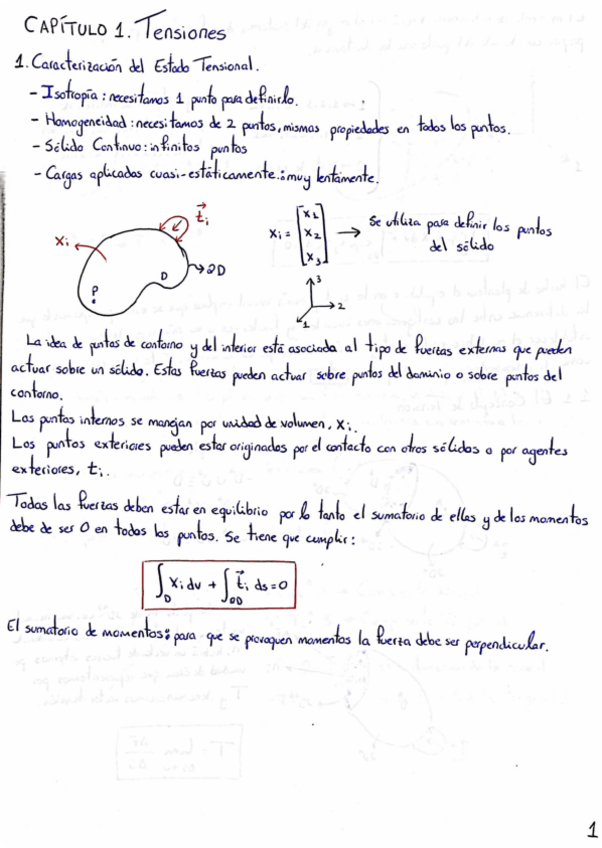 CAPÍTULO 1. Tensiones
1. Caracterización del Estado Tensional.
- Isotropía: necesitamos 1 punto para definirlo.
- Homogeneidad: necesitamos de 2 puntos, mismas propiedades en todos los puntos.
- Sólido Continuo: infinitos puntos
- Cargas aplicadas cuasi-estáticamente: muy lentamente.
t⃗i
Xi
P
D
∂D
Xi = [X1 X2 X3] → Se utiliza para definir los puntos
del sólido
3
2
1
La idea de puntos de contorno y del interior está asociada al tipo de fuerzas externas que pueden
actuar sobre un sólido. Estas fuerzas pueden actuar sobre puntos del dominio o sobre puntos del
contorno.
Los puntos internos se manejan por unidad de volumen, Xi.
Los puntos exteriores pueden estar originados por el contacto con otros sólidos o por agentes
exteriores, ti.
Todas las fuerzas deben estar en equilibrio por lo tanto el sumatorio de ellas y de los momentos
debe de ser 0 en todos los puntos. Se tiene que cumplir:
∫D Xi dv + ∫∂D t⃗i ds = 0
El sumatorio de momentos: para que se provoquen momentos la fuerza debe ser perpendicular.
1